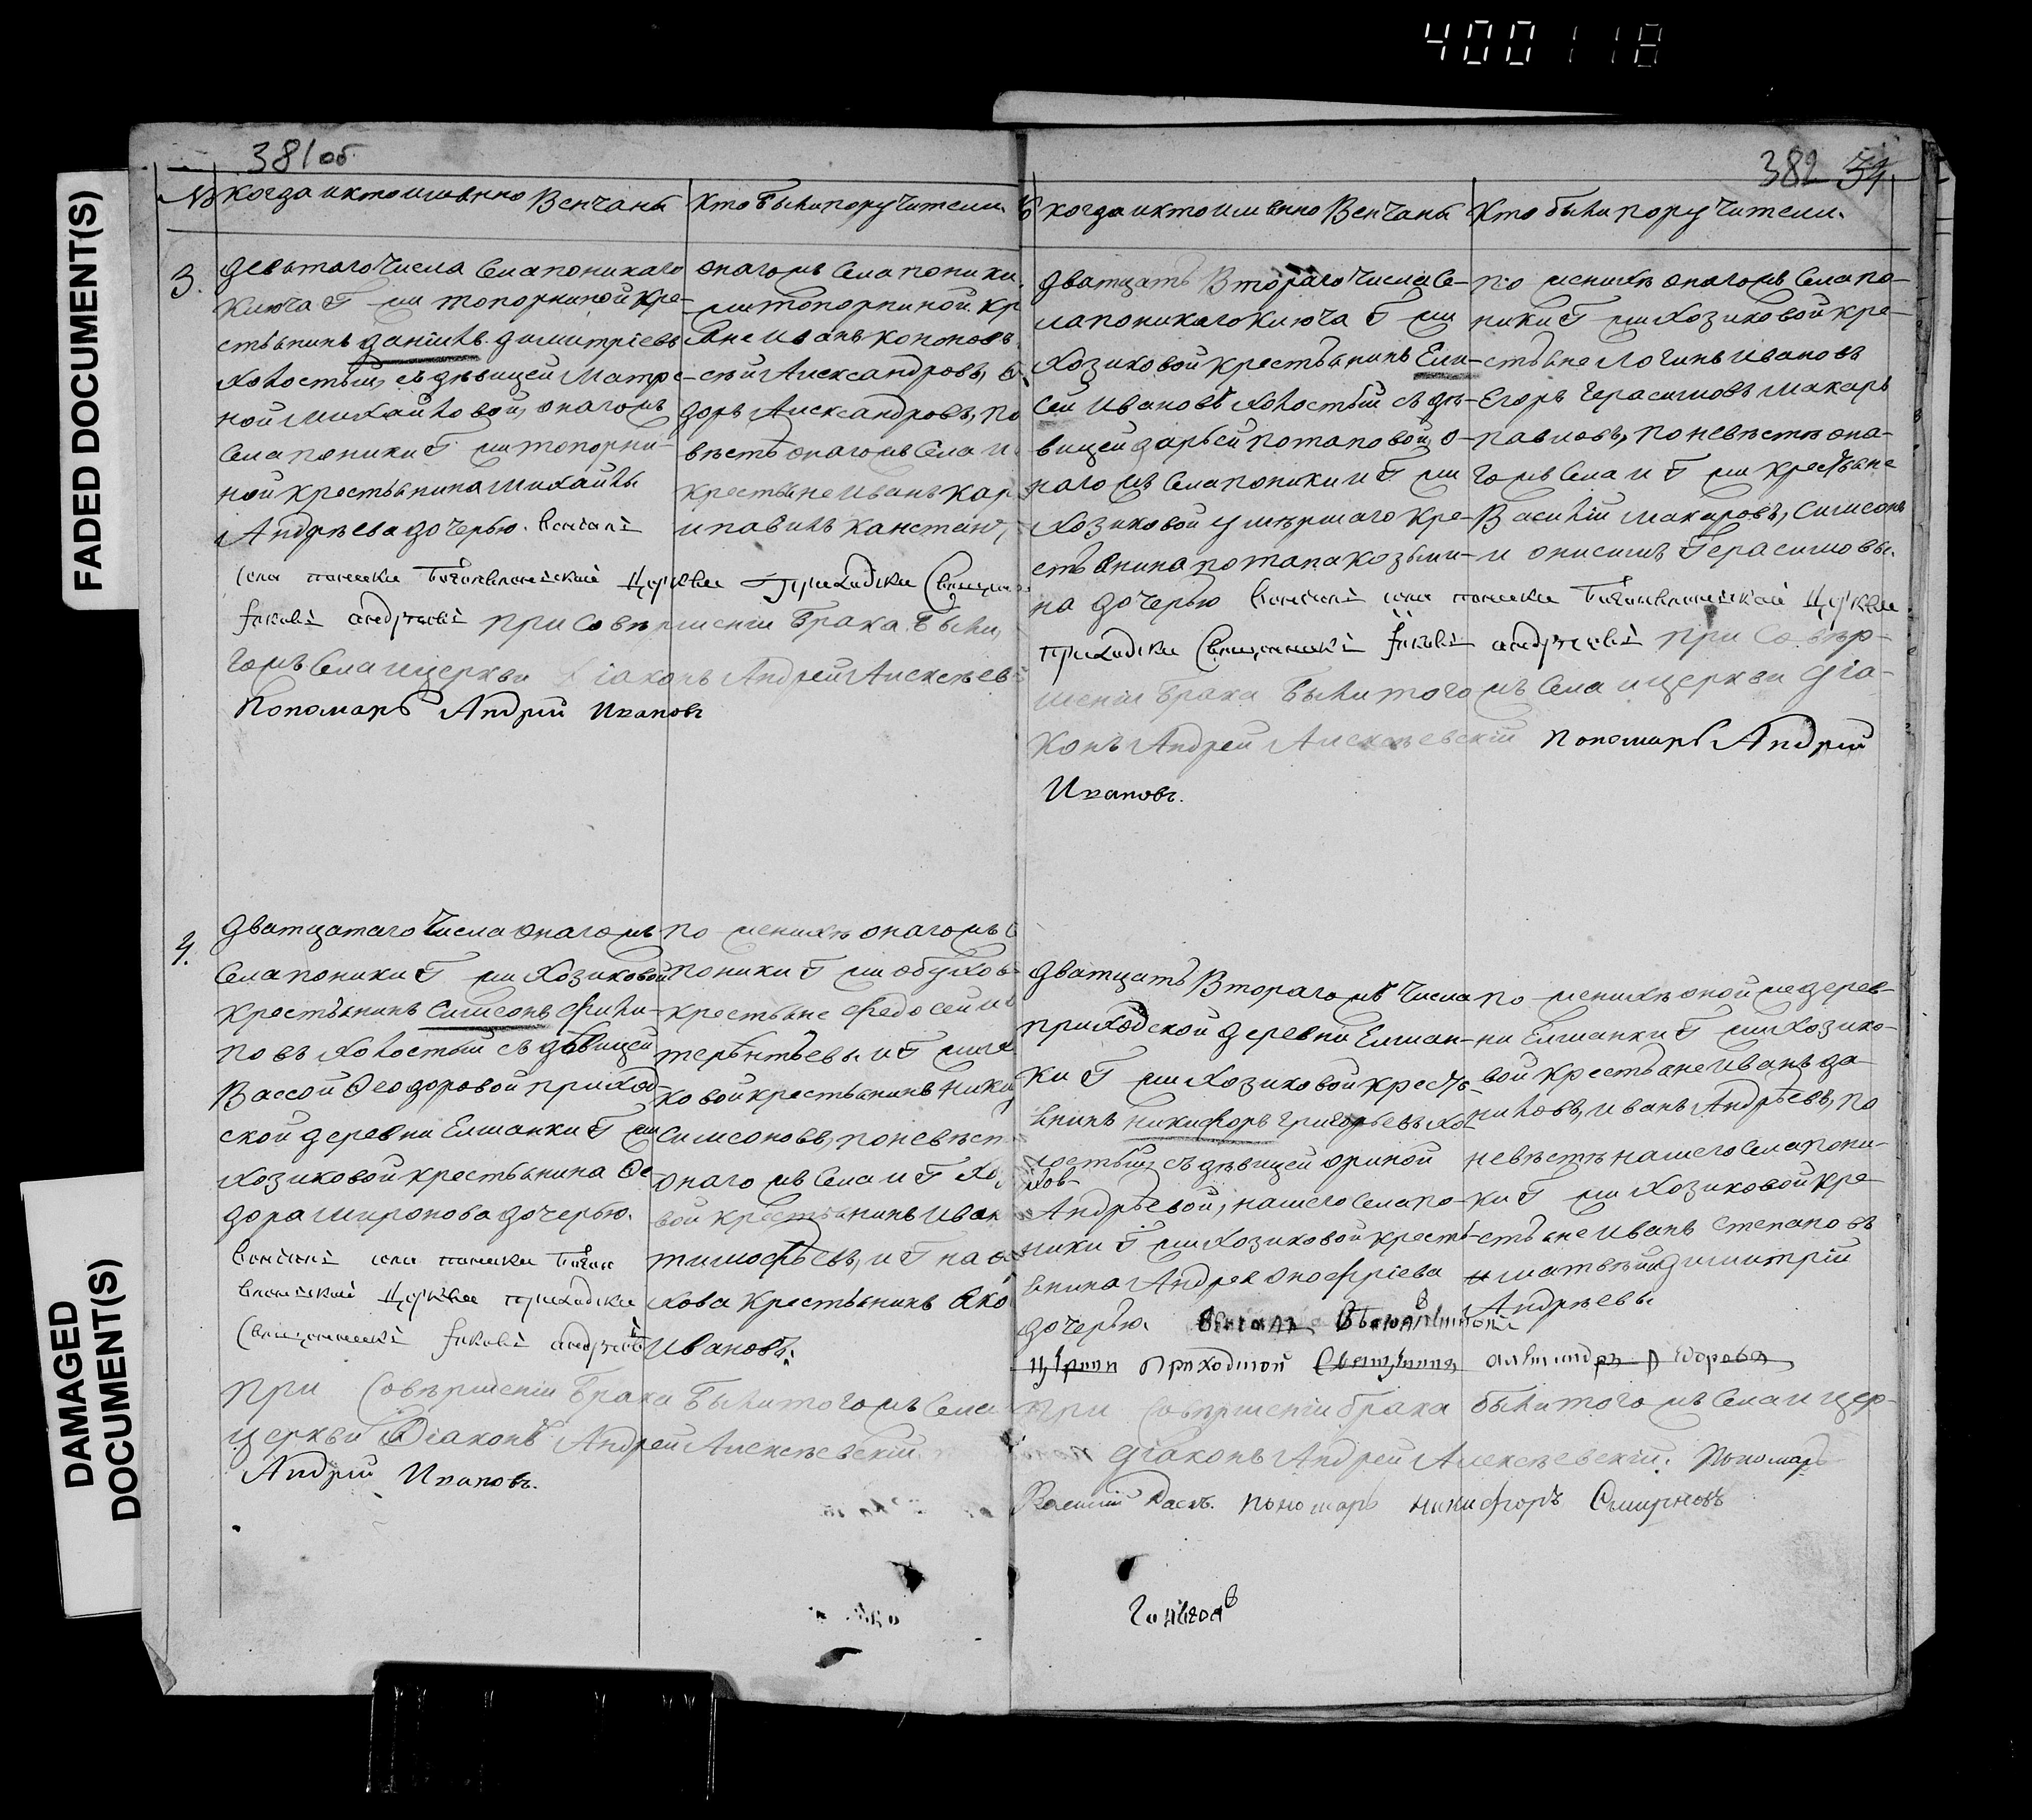 400118
FADED DOCUMENT(S)
DAMAGED
DOCUMENT(S)
381об
№ когда и кто имянно Венчаны
Кто были поручители
3. девятаго Числа Села поникаго
Ключа Г ми топорниной кре-
стьянинъ даніилъ димитріевъ
холостый, съ дѣвицей Матре-
ной михайловой, онагожъ
Села поники Г ми топорни-
ной крестьянина михайлы
Андрѣева дочерью. венчалъ
села поники Церкви приходский
Іаковъ андреевъ при Совершеніи брака были
гожъ Села и церкви Діаконъ Андрей Алексѣев
Пономарь Андрей Ивановъ
онагожъ Села поники
ми топорниной. кр
яне Иванъ кононовъ
сѣй Александровъ,
доръ Александровъ, по
вѣстѣ онагожъ Села и
крестьяне Иванъ кар
и павелъ канстант
4. дватцатаго Числа онагожъ
Села поники Г ми Хозиковой
крестьянинъ Симеонъ фили-
повъ холостый съ дѣвицей
Вассой Ѳеодоровой приход-
ской деревни Елшанки Г ми
Хозиковой крестьянина Ѳе
дора миронова дочерью.
венчалъ села поники
Церкви приходский
Іаковъ андреевъ
При Совѣршеніи брака были тогожъ Села
церкви Діаконъ Андрей Алексѣевскій
Андрей Ивановъ.
по женихѣ онагожъ
поники Г ми обухов
крестьяне Федосей
терѣнтьевы и Г ми
ковой крестьянинъ Ники
Симеоновъ, по невѣст
онагожъ Села и Г Хо
вой крестьянинъ Иван
тимофѣевъ, и Г на
хова Крестьянинъ Яко
Ивановъ.
382 34
когда и кто имянно Венчаны
Кто были поручители.
дватцать Втораго Числа Се-
ла поникаго Ключа Г ми
Хозиковой крестьянинъ Ели-
сей Ивановъ холостый съ дѣ-
вицей дарьей потаповой, о-
нагожъ Села поники и Г ми
Хозиковой умѣршаго кре-
стьянина потапа козьми-
на дочерью венчалъ села поники Церкви
приходский Іаковъ андреевъ при Совѣр-
шеніи брака были тогожъ Села и церкви Діа-
конъ Андрей Алексѣевскій Пономарь Андрей
Ивановъ.
по женихѣ онагожъ Села по-
ники Г ми Хозиковой кре-
стьяне Логинъ Ивановъ
Егоръ Герасимовъ Макаръ
павловъ, по невѣстѣ она-
гожъ Села и Г ми крестьяне
Василій Макаровъ, Симеонъ
и онисимъ Герасимовы.
дватцать Втораго жъ Числа
приходской деревни Елшан-
ки Г ми Хозиковой кресть-
янинъ Никифоръ григорьевъ хо-
лостый, съ дѣвицей ориной
Андрѣевой, нашего Села по-
ники Г ми Хозиковой кресть-
янина Андрея Онофріева
дочерью.
Приходской
При Совѣршеніи брака были тогожъ Села и цер-
діаконъ Андрей Алексѣевскій. Пономарь
пономарь Никифоръ Смирновъ
по женихѣ оной же дерев-
ни Елшанки Г ми Хозико-
вой крестьяне Иванъ да-
ниловъ, Иванъ Андрѣевъ, по
невѣстѣ нашего Села пони-
ки Г ми Хозиковой кре-
стьяне Иванъ Степановъ
и матвѣй димитрій
Андрѣевы